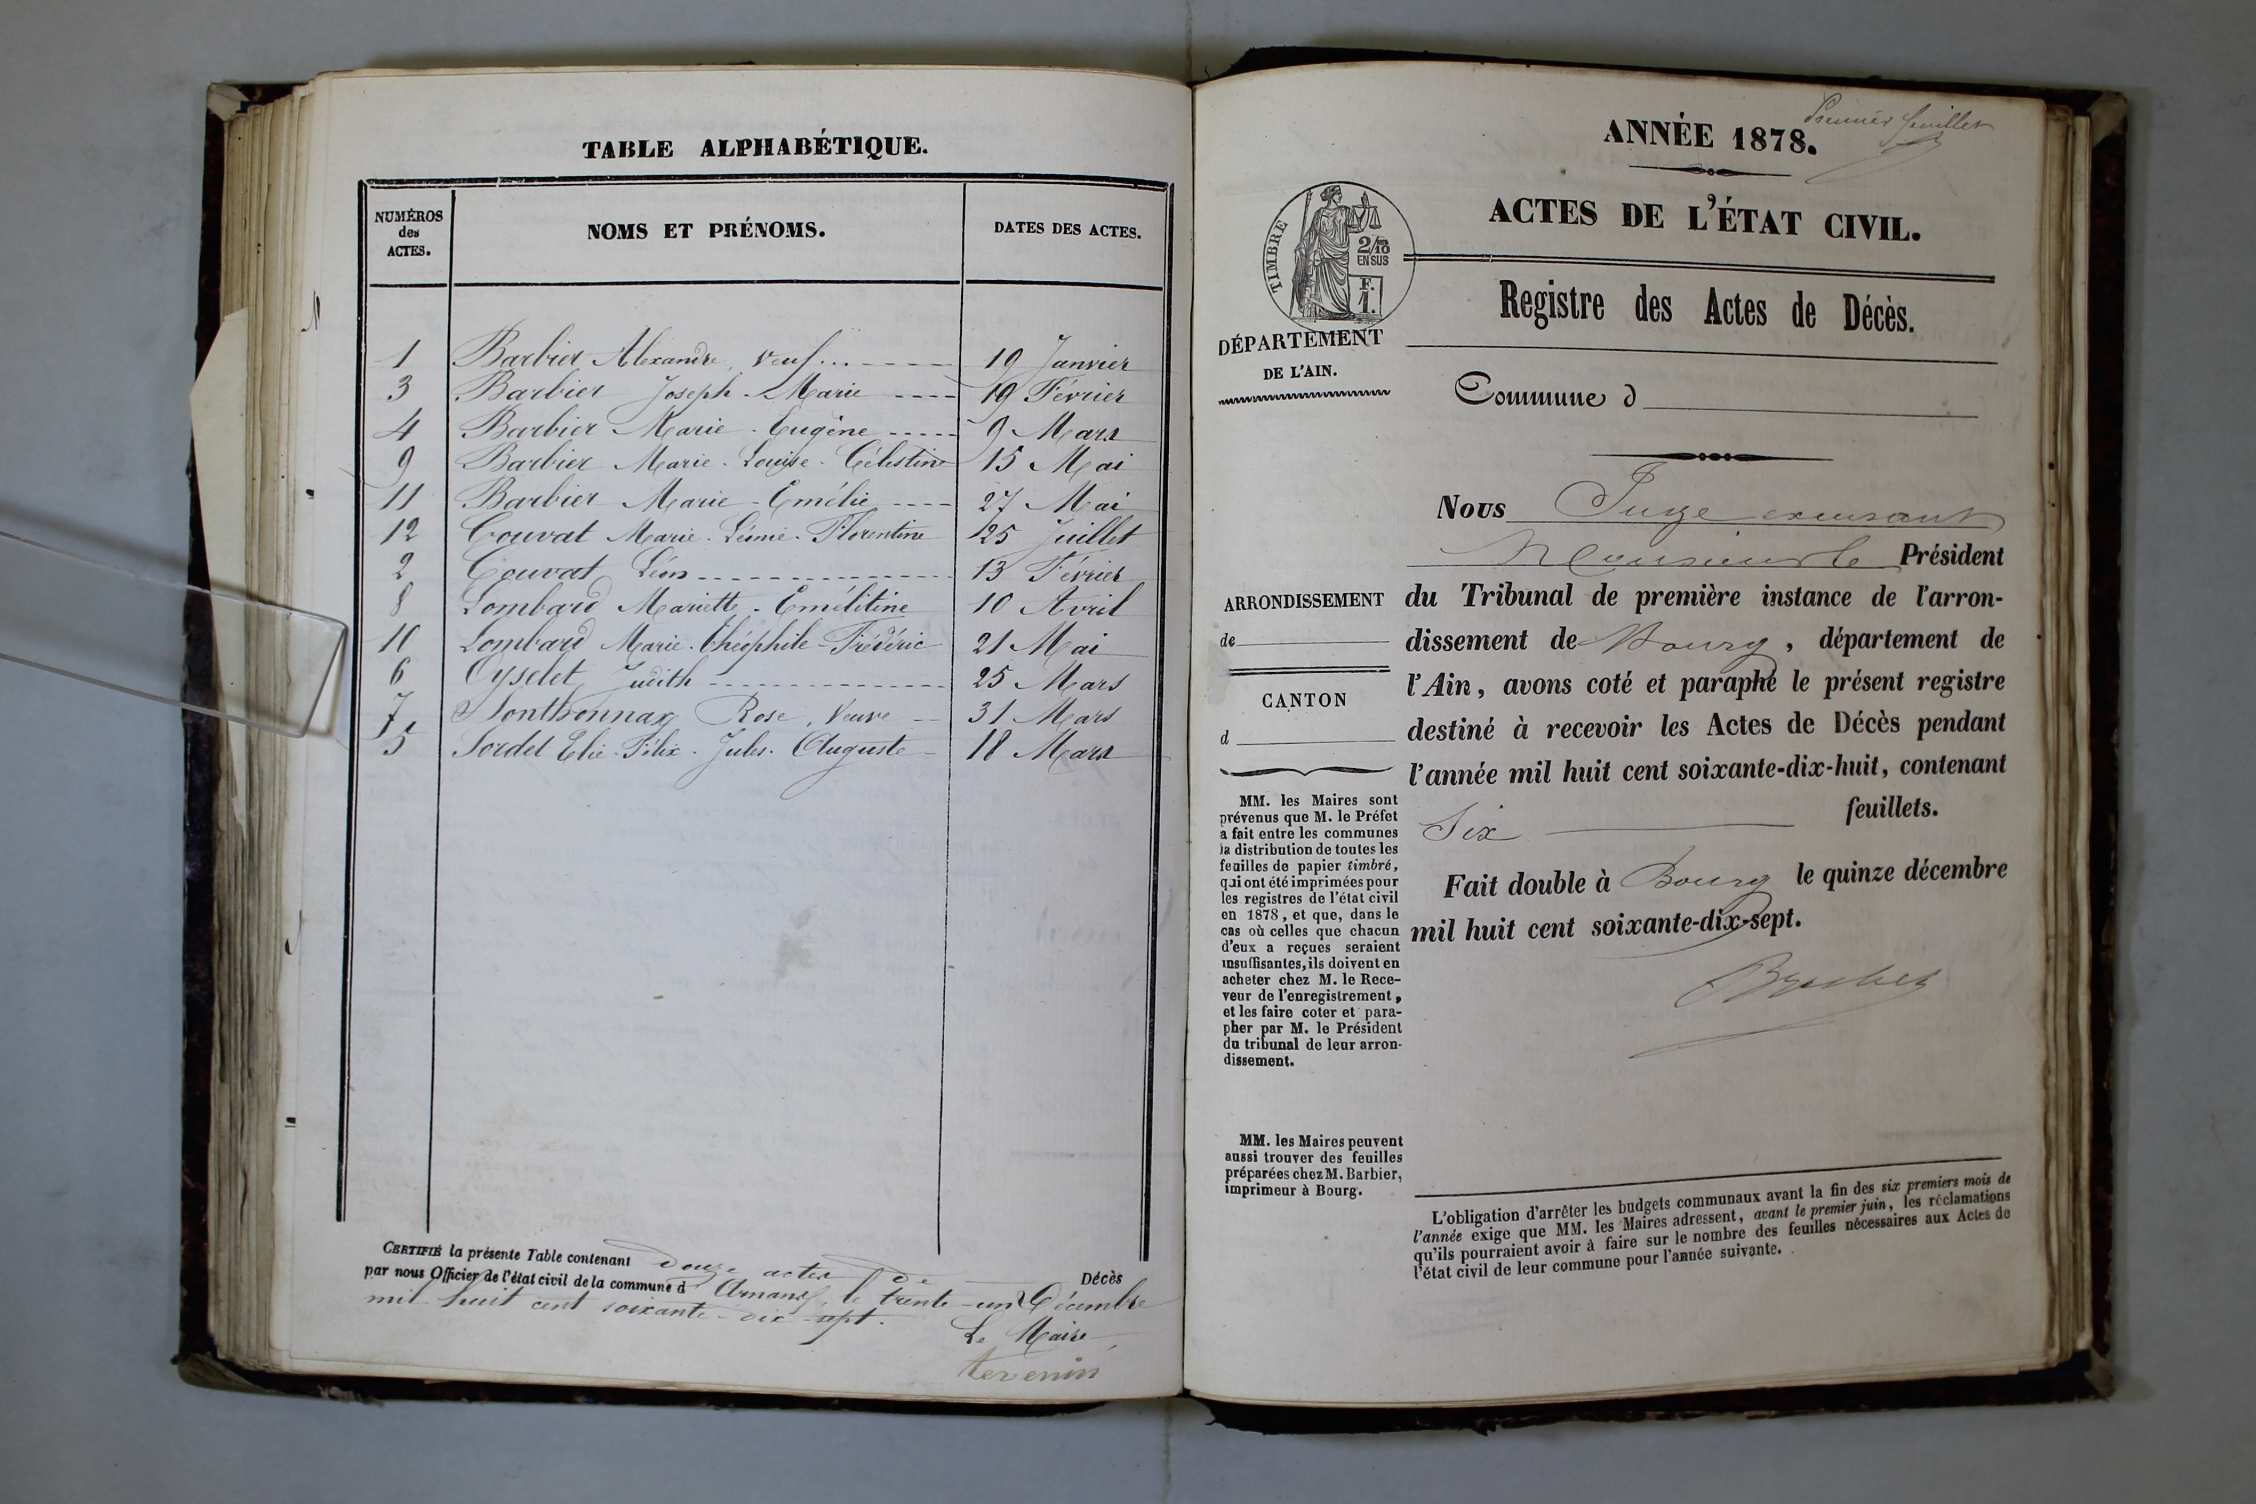 TABLE ALPHABÉTIQUE.
NUMÉROS
des
ACTES.
NOMS ET PRÉNOMS.
DATES DES ACTES.
1 Barbier Alexandre, veuf 19 Janvier
3 Barbier Joseph-Marie 19 Février
4 Barbier Marie-Eugène 9 Mars
9 Barbier Marie-Louise-Célestine 15 Mai
11 Barbier Marie-Emélie 27 Mai
12 Convat Marie-Léonie-Florentine 25 Juillet
2 Convat Léon 13 Février
8 Lombard Mariette-Emélitine 10 Avril
10 Lombard Marie-Théophile-Frédéric 21 Mai
6 Oyselet Judith 25 Mars
7 Monthonnax Rose, Veuve 31 Mars
5 Sordet Elie-Félix-Jules-Auguste 18 Mars
CERTIFIÉ la présente Table contenant douze actes de Décès
par nous Officier de l'état civil de la commune d'Arnans, le trente-un Décembre
mil huit cent soixante-dix-sept.
Le Maire
tevenin
Premier feuillet
ANNÉE 1878.
ACTES DE L'ÉTAT CIVIL.
TIMBRE
2/10
EN SUS
F.
1.
DÉPARTEMENT
DE L'AIN.
Registre des Actes de Décès.
Commune d
Nous Juge exerçant
Monsieur le Président
du Tribunal de première instance de l'arron-
dissement de Bourg, département de
l'Ain, avons coté et paraphé le présent registre
destiné à recevoir les Actes de Décès pendant
l'année mil huit cent soixante-dix-huit, contenant
Six feuillets.
Fait double à Bourg le quinze décembre
mil huit cent soixante-dix-sept.
ARRONDISSEMENT
de
CANTON
d
MM. les Maires sont
prévenus que M. le Préfet
a fait entre les communes
la distribution de toutes les
feuilles de papier timbré,
qui ont été imprimées pour
les registres de l'état civil
en 1878, et que, dans le
cas où celles que chacun
d'eux a reçues seraient
insuffisantes, ils doivent en
acheter chez M. le Rece-
veur de l'enregistrement,
et les faire coter et para-
pher par M. le Président
du tribunal de leur arron-
dissement.
MM. les Maires peuvent
aussi trouver des feuilles
préparées chez M. Barbier,
imprimeur à Bourg.
L'obligation d'arrêter les budgets communaux avant la fin des six premiers mois de
l'année exige que MM. les Maires adressent, avant le premier juin, les réclamations
qu'ils pourraient avoir à faire sur le nombre des feuilles nécessaires aux Actes de
l'état civil de leur commune pour l'année suivante.